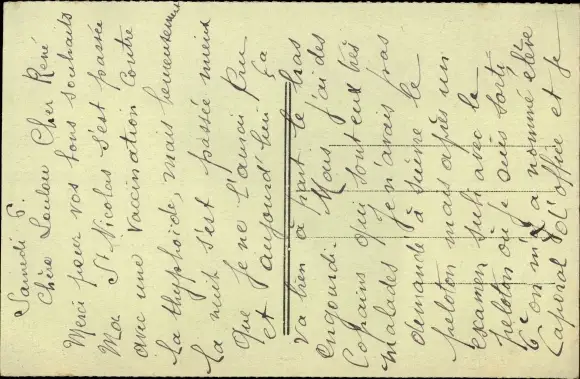 Samedi 6.
Chère Loulou Cher René
Merci pour vos bons souhaits
Ma St Nicolas s'est passée
avec une vaccination contre
la thyphoïde, mais heureusement
la nuit s'est passée mieux
que je ne l'aurais cru
et aujourd'hui ça
va bien à part le bras
engourdi. Mais j'ai des
copains qui sont eux très
malades je n'avais pas
demandé à suivre le
peloton mais après un
examen subi avec le
peloton où je suis sorti
6e on m'a nommé élève
Caporal d'office et je